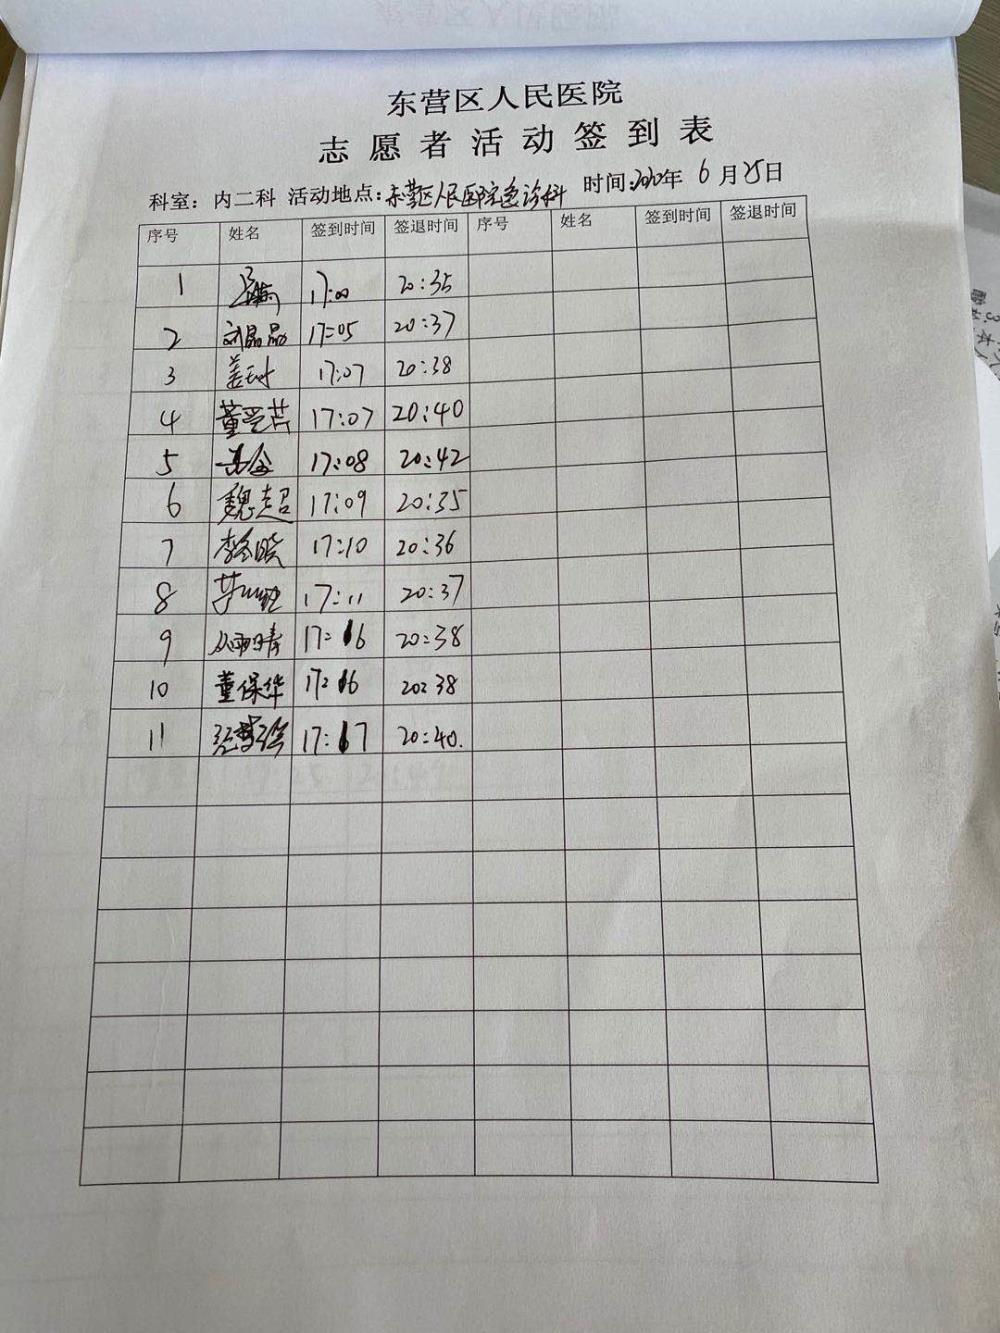 东营区人民医院
志愿者活动签到表
科室：内二科 活动地点：东营区人民医院急诊科 时间：2020年 6 月 25日
序号 姓名 签到时间 签退时间 序号 姓名 签到时间 签退时间
1 17:00 20:35
2 刘晶晶 17:05 20:37
3 17:07 20:38
4 董爱芹 17:07 20:40
5 17:08 20:42
6 魏超 17:09 20:35
7 17:10 20:36
8 17:11 20:37
9 丛雨晴 17:16 20:38
10 董保华 17:16 20:38
11 17:17 20:40.